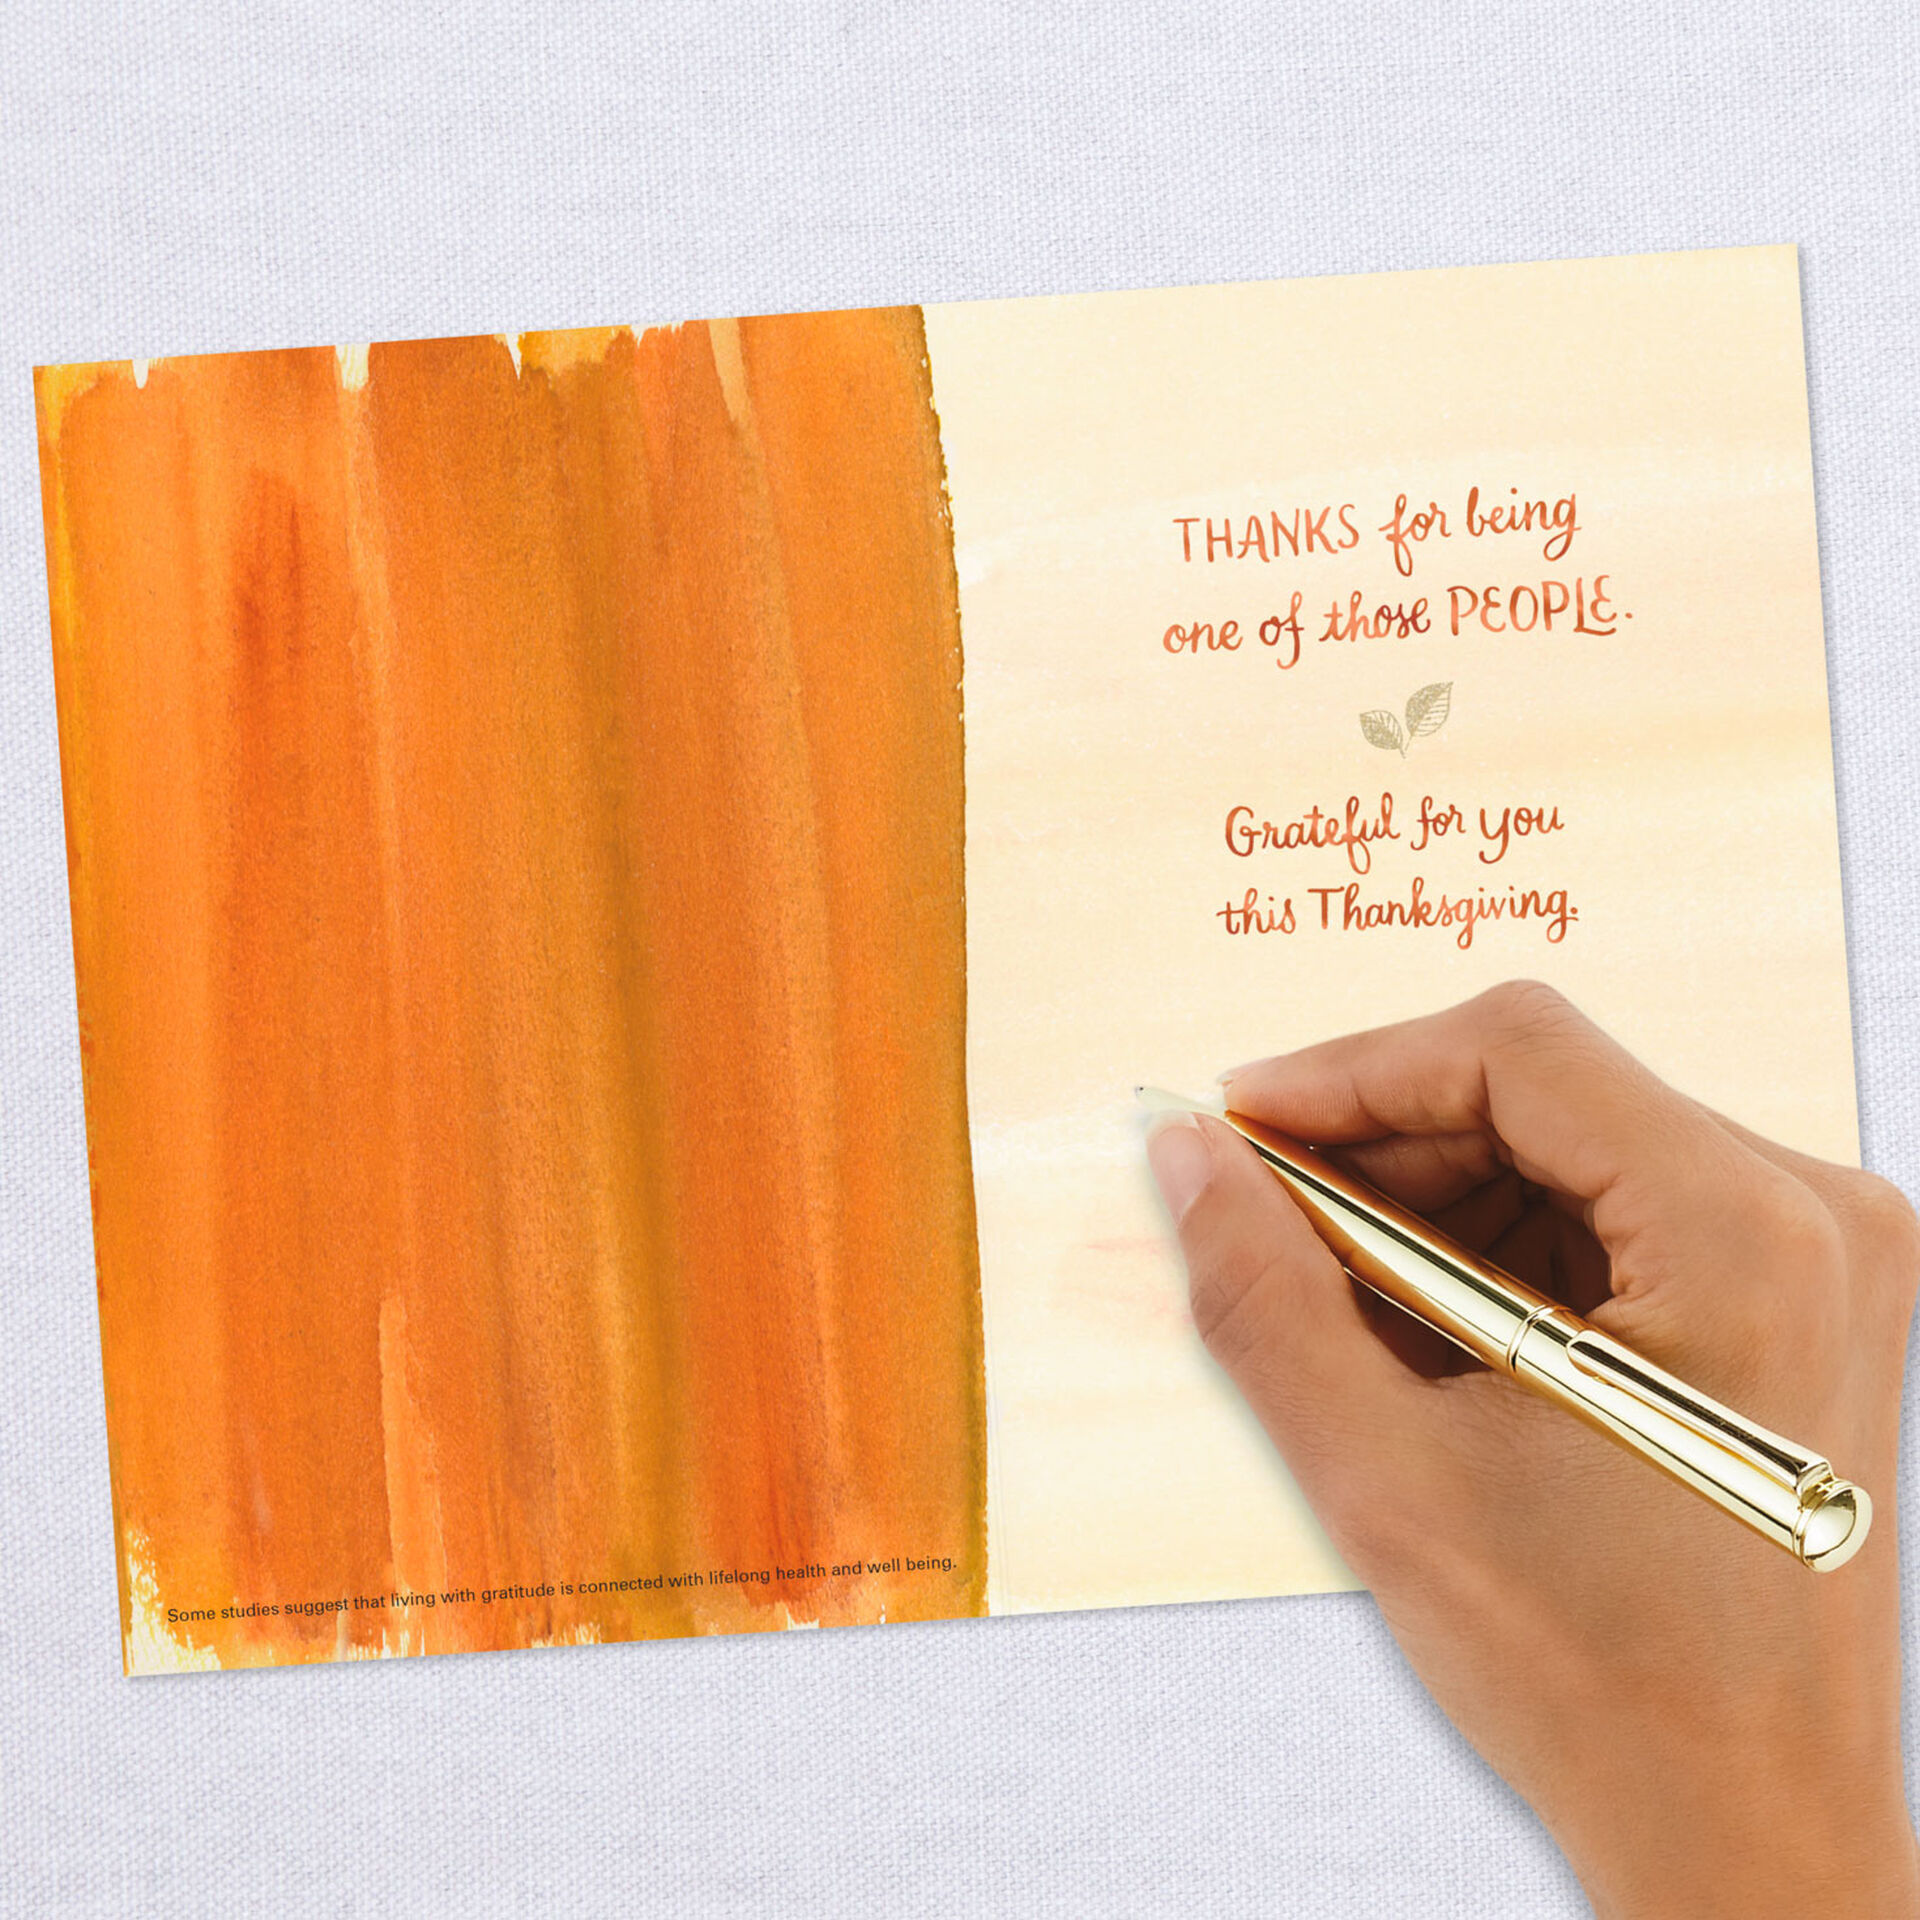 THANKS for being
one of those PEOPLE.
Grateful for you
this Thanksgiving.
Some studies suggest that living with gratitude is connected with lifelong health and well being.